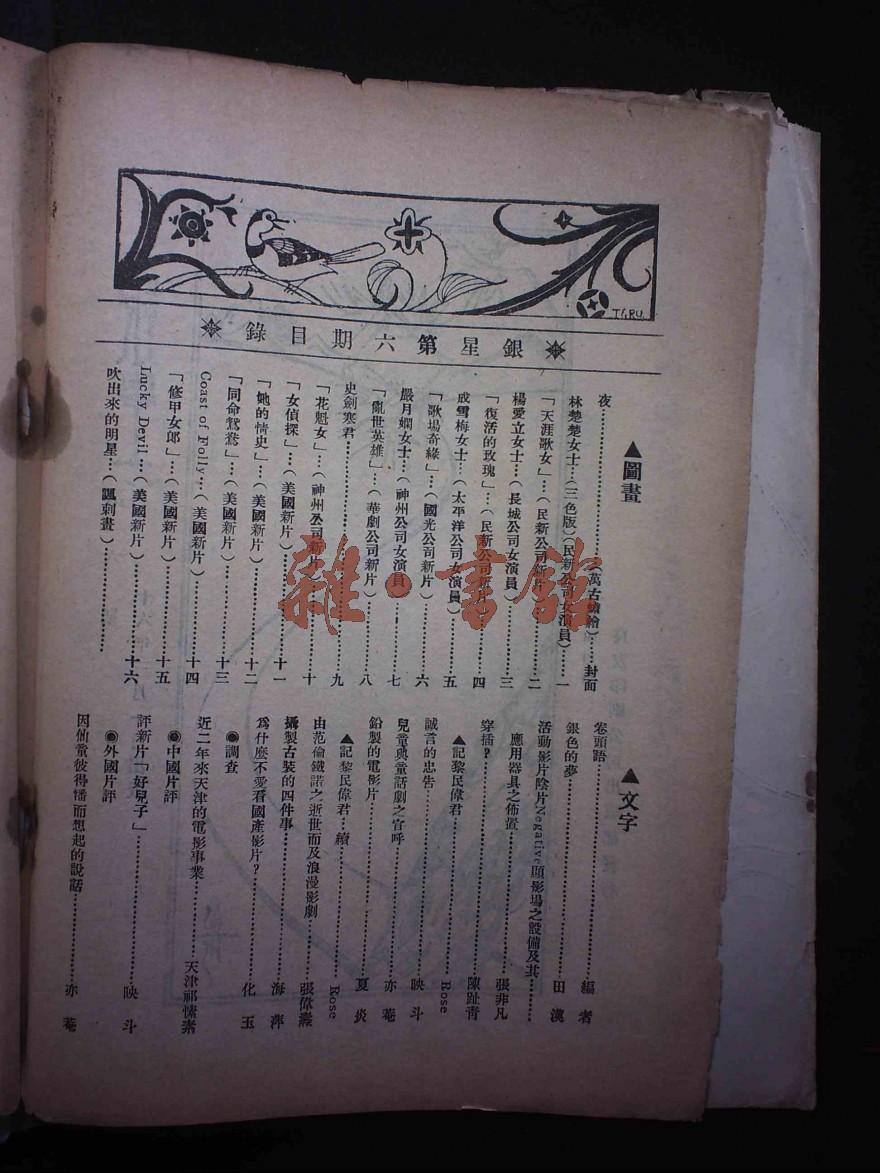 T.G.RU.
銀星第六期目錄
▲圖畫
夜……(萬古蟾繪)……封面
林楚楚女士…(三色版)(民新公司女演員)……一
「天涯歌女」…(民新公司新片)……二
楊愛立女士…(長城公司女演員)……三
「復活的玫瑰」…(民新公司新片)……四
成雪梅女士…(太平洋公司女演員)……五
「歌場奇緣」…(國光公司新片)……六
嚴月嫻女士…(神州公司女演員)……七
「亂世英雄」…(華劇公司新片)……八
史劍寒君……九
「花魁女」…(神州公司新片)……十
「女偵探」…(美國新片)……十一
「她的情史」…(美國新片)……十二
「同命鴛鴦」…(美國新片)……十三
Coast of Folly…(美國新片)……十四
「修甲女郎」…(美國新片)……十五
Lucky Devil…(美國新片)……十六
吹出來的明星…(諷刺畫)……
▲文字
卷頭語……編者
銀色的夢……田漢
活動影片陰片Negative顯影場之設備及其……
應用器具之佈置……張非凡
穿插?……陳趾青
▲記黎民偉君……Rose
誠言的忠告……映斗
兒童與童話劇之官呼……亦菴
鉛製的電影片……夏炎
▲記黎民偉君…續……Rose
由范倫鐵諾之逝世而及浪漫影劇……張偉濤
攝製古裝的四件事……海萍
爲什麼不愛看國產影片?……化玉
●調查
近二年來天津的電影事業……天津祁愫素
●中國片評
評新片「好兒子」……映斗
●外國片評
因仙童彼得潘而想起的說話……亦菴
雜·書館